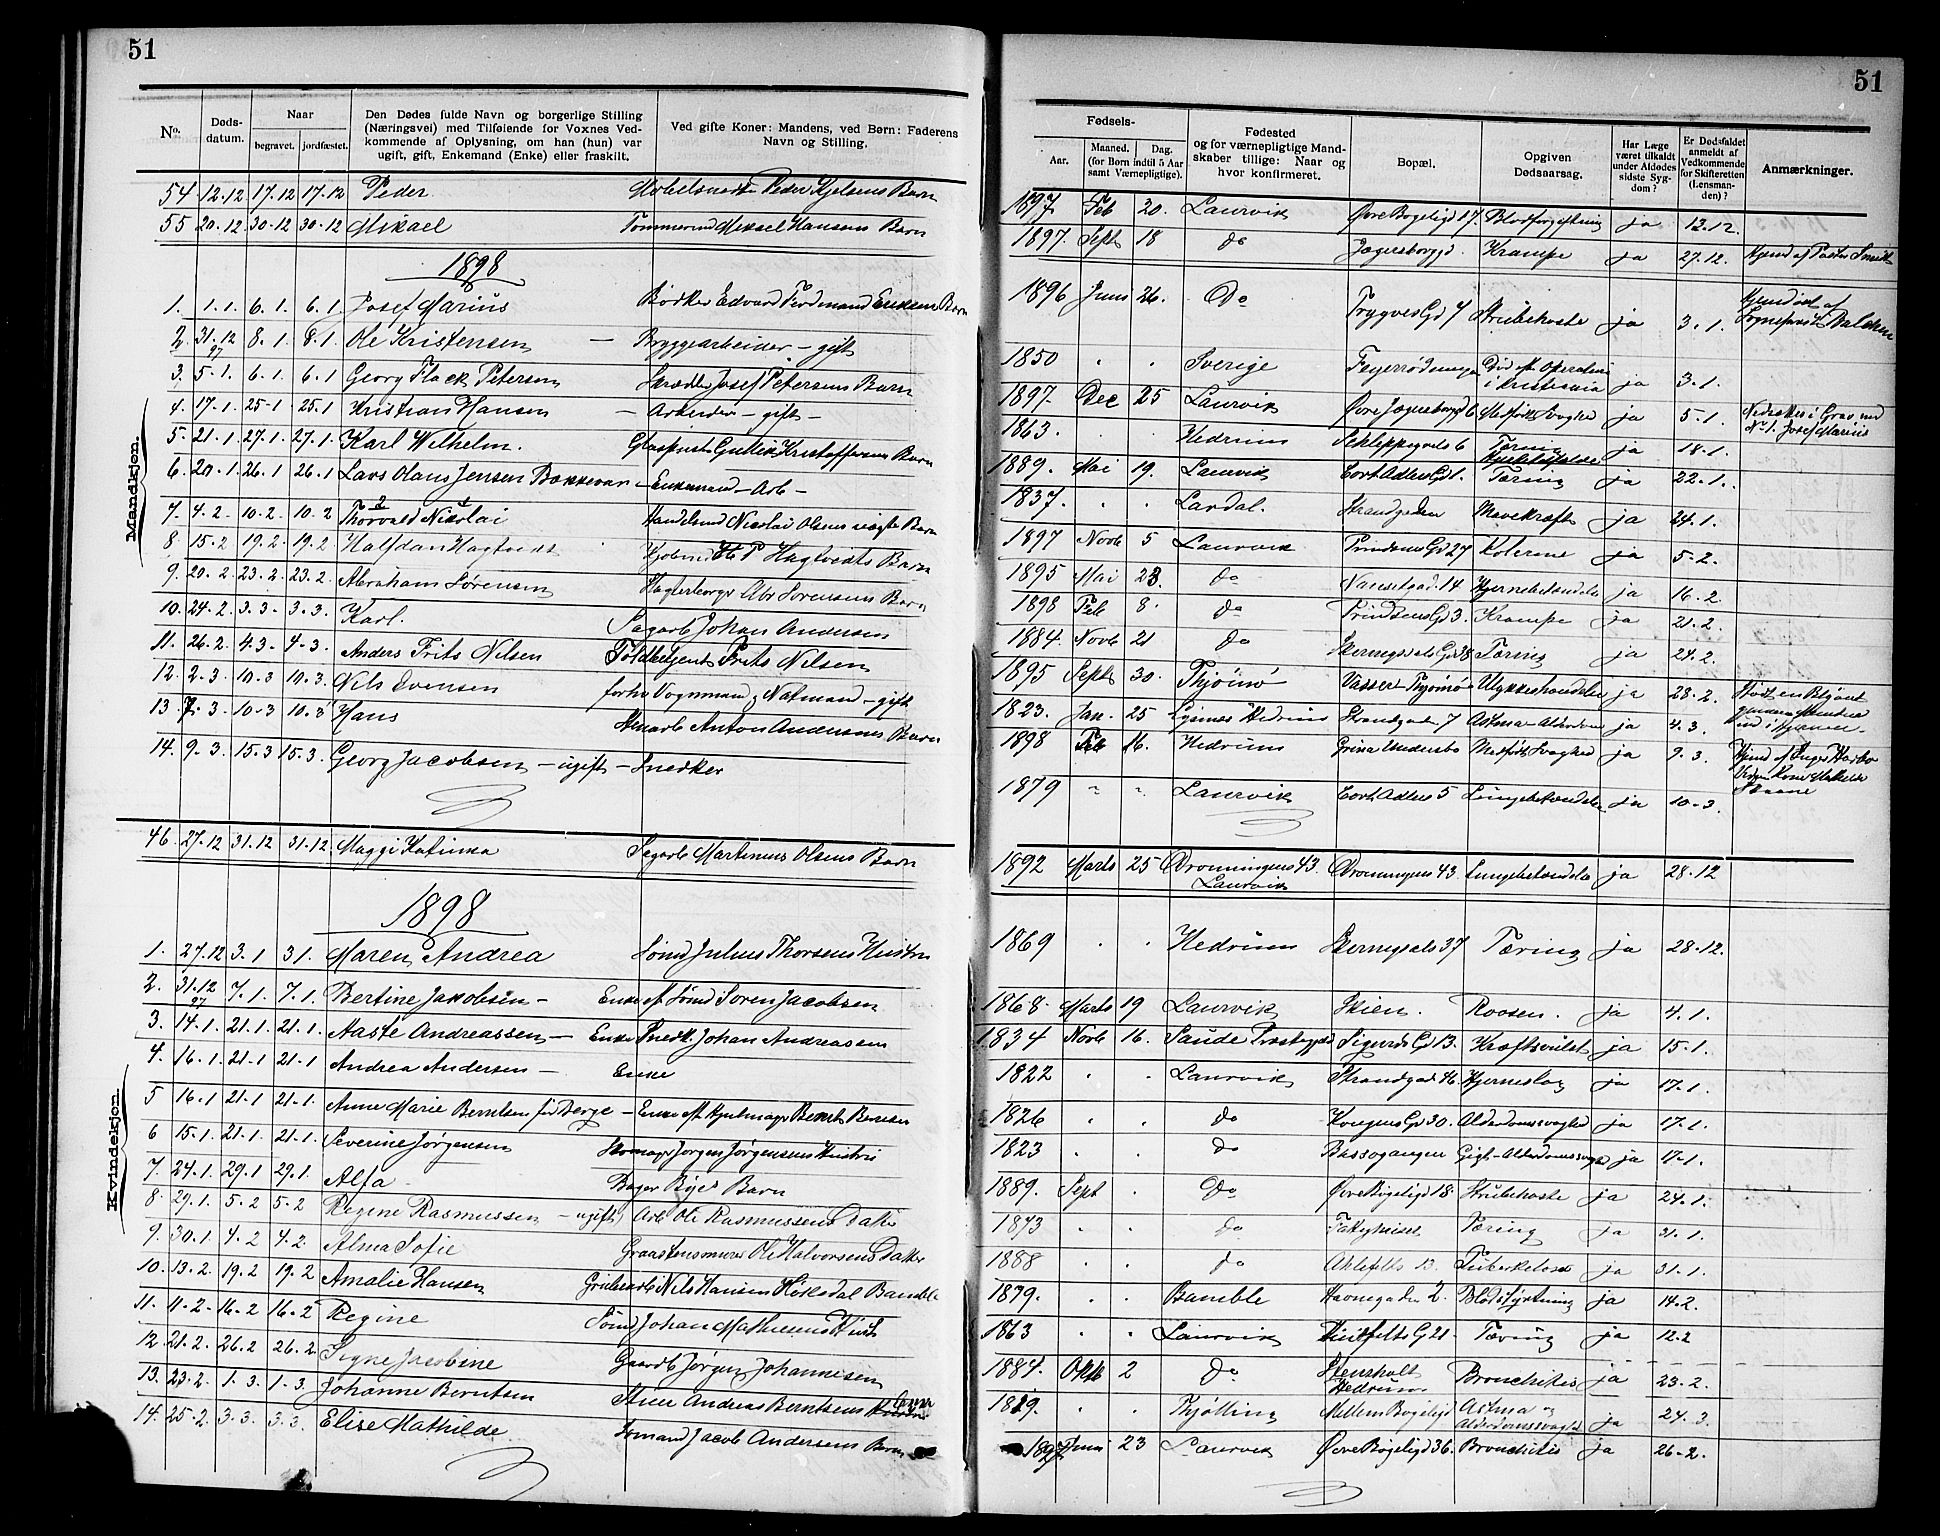 51
51
No.
Døds-
datum.
Naar
begravet.
jordfæstet.
Den Dødes fulde Navn og borgerlige Stilling
(Næringsvei) med Tilføiende for Voxnes Ved-
kommende af Oplysning, om han (hun) var
ugift, gift, Enkemand (Enke) eller fraskilt.
Ved gifte Koner: Mandens, ved Børn: Faderens
Navn og Stilling.
Fødsels-
Aar.
Maaned.
Dag.
(for Børn indtil 5 Aar
samt Værnepligtige).
Fødested
og for værnepligtige Mand-
skaber tillige: Naar og
hvor konfirmeret.
Bopæl.
Opgiven
Dødsaarsag.
Har Læge
været tilkaldt
under Afdødes
sidste Syg-
dom?
Er Dødsfaldet
anmeldt af
Vedkommende
for Skifteretten
(Lensman-
den)?
Anmærkninger.
Mandkjøn.
54 12.12 17.12 17.12 Peder Peder Barn 1897 Feb 20. Laurvik Øvre Bøgeligd 17. Blodforgiftning ja 13.12.
55 20.12 30.12 30.12 Mikael Tømmermd Mikael Hansens Barn 1897. Sept 18 do Jægersborggd. Krampe ja 27.12.
1898
1. 1.1. 6.1. 6.1. Josef Marius Bødker Edvard Ferdinand Eriksens Barn 1896 Juni 26. Do Trygves Gd 7 Strubehoste ja 3.1.
2. 31.12 97 8.1. 8.1. Ole Kristensen — Bryggearbeider – gift 1850 Sverige Død eft Operation i Kristiania ja 3.1.
3. 5.1. 6.1. 6.1 Georg Flack Petersen Skrædder Josef Petersens Barn 1897. Dec 25 Laurvik Øvre Jægersborggd 6 Medfødt Svaghed ja 5.1. Nedsættes i Grav med No 1. Josef Marius
4. 17.1. 25.1 25.1 Kristian Hansen — Arbeider – gift – 1863. Hedrum Tæring ja 18.1.
5. 21.1. 27.1. 27.1. Karl Wilhelm. Glaspuster Gullik Kristoffersens Barn 1889. Mai 19. Laurvik Cort Adlers Gd 1. Tæring ja 22.1.
6. 20.1. 26.1 26.1 Lars Olaus Jensen Bakkevar – Enkemand – Arb – 1837. Lardal. Strandgaden Mavekræft ja 24.1.
7. 4.2. 10.2. 10.2 Thorvald Nicolai Nicolai Olsens Barn 1897 Novb 5 Laurvik Prindsens Gd 27 Kolerine ja 5.2.
8 15.2 19.2. 19.2. Halfdan Hagtvedt Kjøbmd Ole P Hagtvedts Barn 1895 Mai 23. do Nansetgad. 14 Hjernebetændelse ja 16.2.
9. 20.2. 23.2. 23.2. Abraham Sørensen Abr Sørensens Barn 1898 Feb 8. do Prindsens Gd 3. Krampe ja 21.2.
10. 24.2. 3.3. 3.3. Karl. Sagarb Johan Andersen 1884. Novb 21 do Tæring ja 24.2.
11. 26.2. 4.3. 4.3. Anders Frits Nilsen Toldbetjent Frits Nilsen 1895 Sept 30. Thjømø Vasser Thjømø Ulykkeshændelse ja 28.2.
12. 2.3. 10.3 10.3. Nils Evensen forhv Vognmand, Natmand – gift 1823. Jan. 25 Hedrum Strandgaden 7 Astma – Alderdom ja 4.3.
13. 7.3. 10.3 10.3 Hans Anton Andersens Barn 1898 Feb 16. Hedrum Medfødt Svaghed ja 9.3.
14. 9.3. 15.3 15.3. Georg Jacobsen – ugift – Snedker 1879 Laurvik Cort Adlers 5 Lungebetændelse ja 10.3.
46. 27.12 31.12 31.12. Maggi Katinka Segarb Martinius Olsens Barn 1892 Marts 25 Dronningens 43. Laurvik Dronningens 43. Lungebetændelse ja 28.12
1898
Kvindekjøn.
1. 27.12 3.1 3.1. Maren Andrea Sømd Julius Thorsens Hustru 1869 Hedrum 37 Tæring ja 28.12.
2. 31.12 97 7.1. 7.1. Bertine Jakobsen – Enke eft Sømd Søren Jacobsen 1868. Marts 19 Laurvik Skien. Roosen. ja 4.1.
3. 14.1. 21.1. 21.1. Aaste Andreassen – Enke Snedk. Johan Andreasen 1834 Novb 16. Saude Præstegjeld Sigurds Gd 13. Kræftsvulst ja 15.1.
4. 16.1. 21.1 21.1 Andrea Andersen – Enke 1822 Laurvik Strandgad. 46. Hjerneslag ja 17.1.
5 16.1 21.1 21.1. Anne Marie Berntsen fød Berge – Enke eft Hjulmager Bernt Berntsen 1826 do Kongens Gd 30. Alderdomssvaghed ja 17.1.
6 15.1. 21.1. 21.1. Severine Jørgensen Skomager Jørgen Jørgensens Hustru 1823 do Bassegangen Gigt – Alderdomssvaghed ja 17.1.
7. 24.1. 29.1 29.1. Alfa Bager Byes Barn 1889. Sept Do Øvre Bøgeligd 18. Strubehoste ja 24.1.
8. 29.1. 5.2 5.2 Regine Rasmussen – ugift) Arb Ole Rasmussens Datter 1873 do Tæring ja 31.1.
9. 30.1. 4.2 4.2. Alma Sofie Graastensmurer Ole Halvorsens Datter 1888 do Ahlefelts 13. Tuberkelose ja 31.1.
10. 13.2. 19.2 19.2 Amalie Hansen Grubearb Nils Hansen Bamble 1879. Bamble Havnegaden 2. Blodstyrtning ja 14.2.
11. 11.2. 16.2 16.2 Regine Sømd Johan Mathiesens Hust 1863 Laurvik Tæring ja 12.2
12. 21.2. 26.2 26.2. Signe Jacobine Gaardb Jørgen Johannesen 1884. Oktb 2 Do Stensholt Hedrum Bronchitis ja 23.2.
13. 23.2. 1.3. 1.3. Johanne Berntsen Andreas Berntsens Enke 1819. Kjølling Mellem Bøgeligd Astma og Alderdomssvaghed ja 24.3.
14. 25.2. 3.3. 3.3. Elise Mathilde Sømand Jacob Andersens Barn 1897 Juni 23 Laurvik Øvre Bøgeligd 36. Bronchitis ja 26.2.